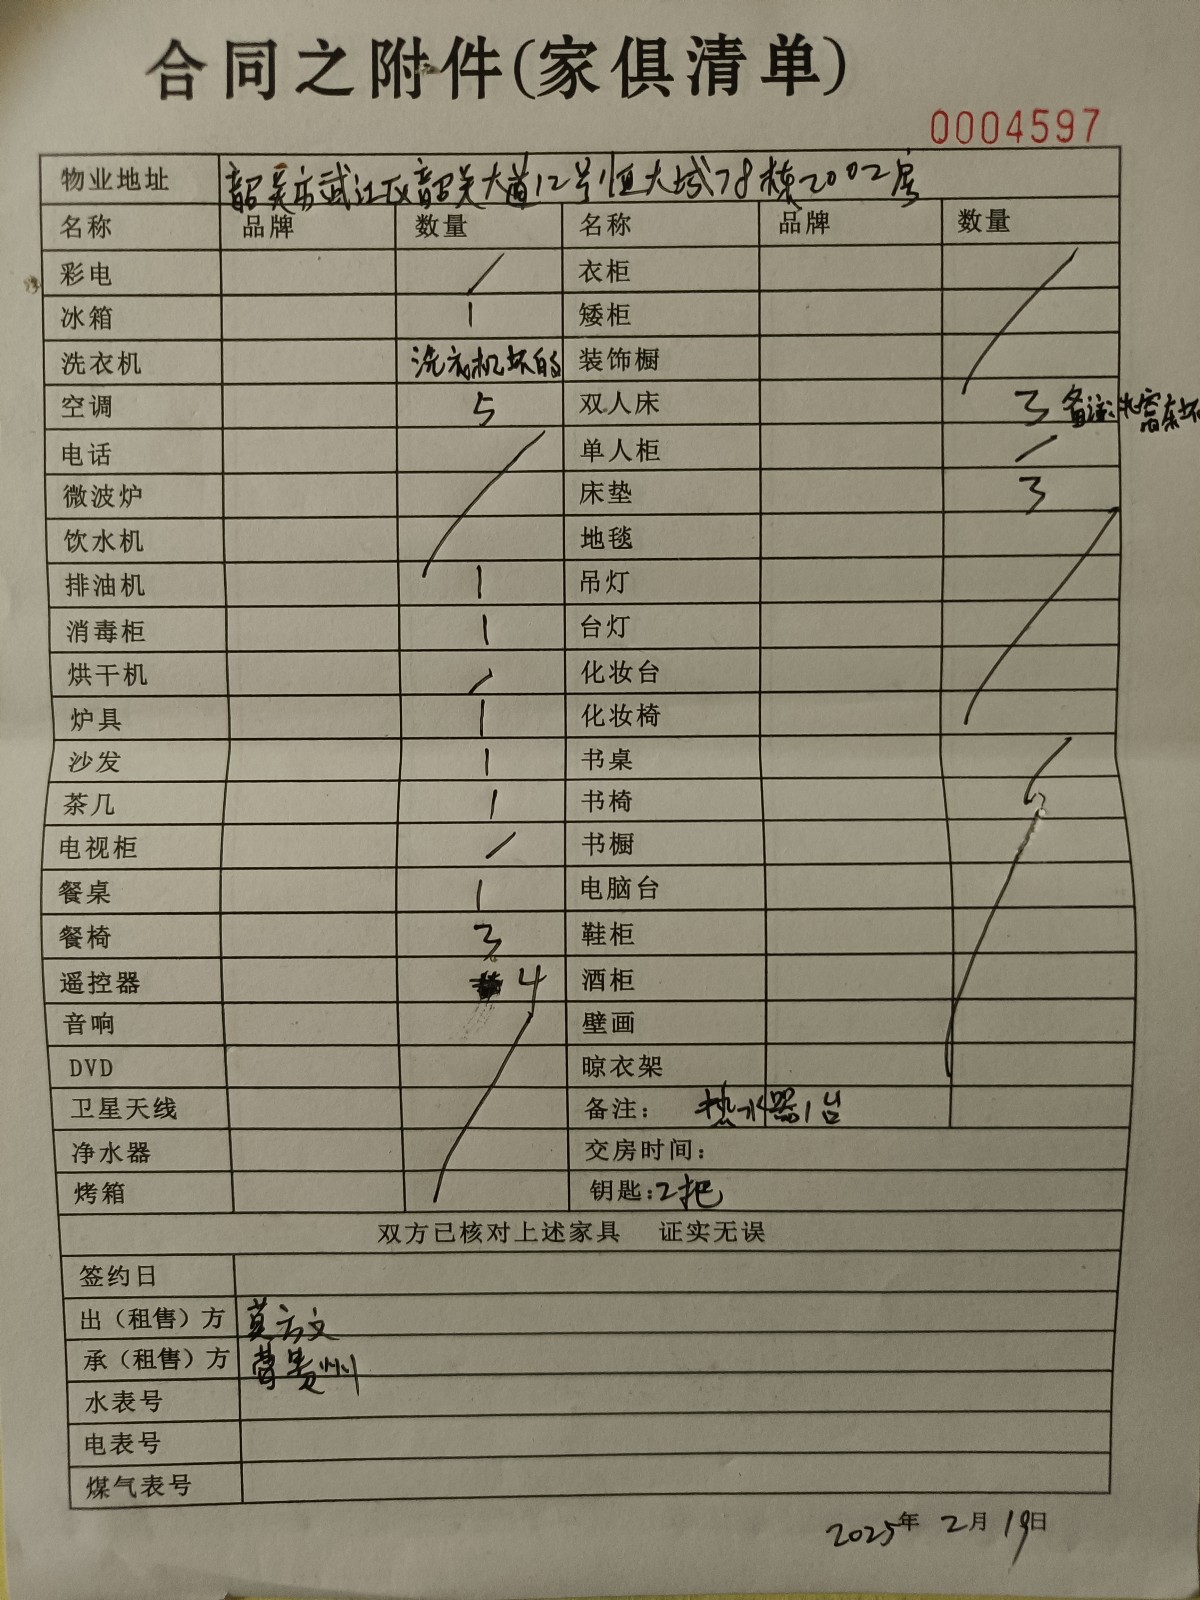 合同之附件(家俱清单)
0004597
物业地址 韶关市武江区韶关大道12号恒大城78栋2002房
名称 品牌 数量 名称 品牌 数量
彩电 / 衣柜 /
冰箱 1 矮柜
洗衣机 洗衣机坏的 装饰橱
空调 5 双人床 3 备注:
电话 / 单人柜 /
微波炉 床垫 3
饮水机 地毯 /
排油机 1 吊灯
消毒柜 1 台灯
烘干机 / 化妆台
炉具 1 化妆椅
沙发 1 书桌 /
茶几 1 书椅
电视柜 / 书橱 /
餐桌 1 电脑台
餐椅 3 鞋柜
遥控器 4 酒柜
音响 / 壁画
DVD 晾衣架
卫星天线 备注: 热水器1台
净水器 交房时间:
烤箱 钥匙:2把
双方已核对上述家具 证实无误
签约日
出(租售)方 莫方文
承(租售)方 贵州
水表号
电表号
煤气表号
2025年 2月 19日